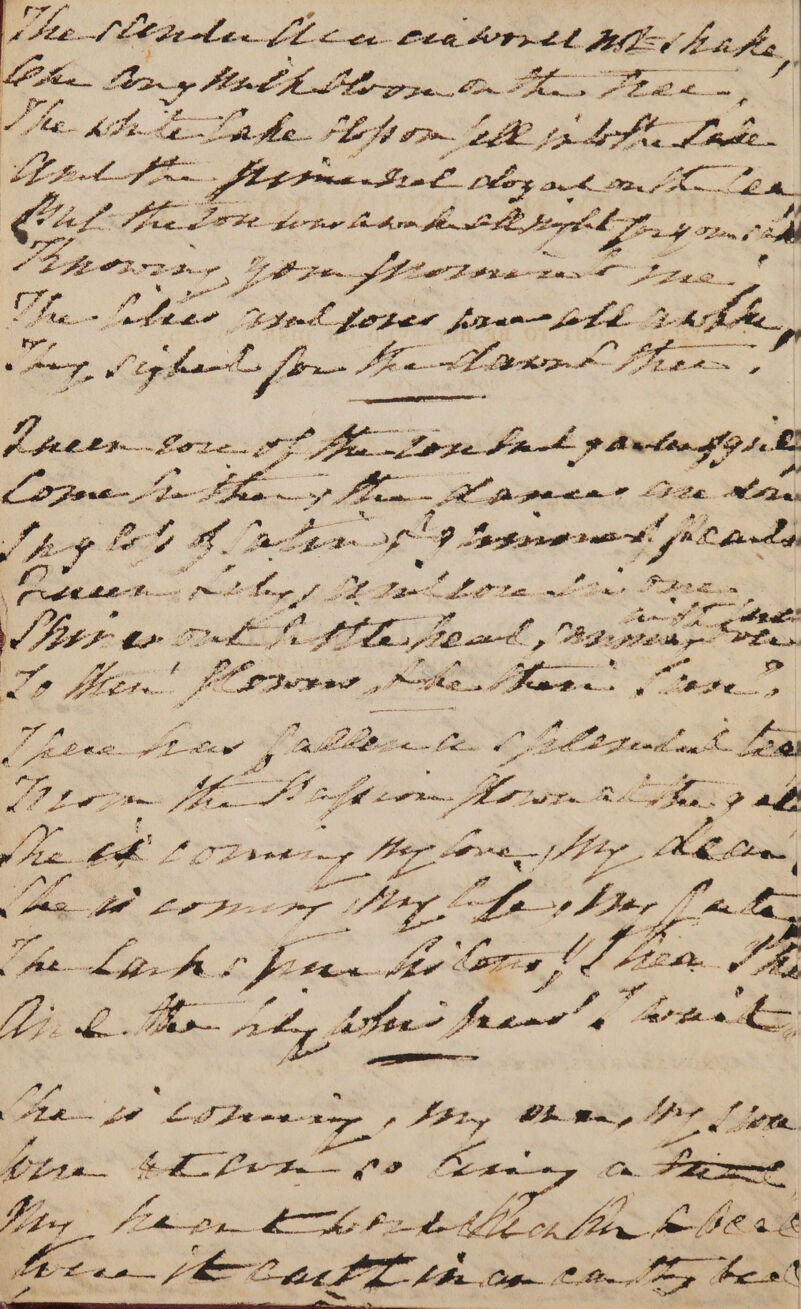 The slender Acacia would not shake,
One long milk bloom on the tree,
The white lake blossom fell into the lake
And the pimpernel dozed on the lea
But the rose was awake all night for your sake
Knowing your promise to me,
The lilies and roses were all awake,
They sighed for the dawn & thee.
Queen rose of the rosebud garden of girls
Come hither, the dances are done
In gloss of satin & glimmer of pearls
Queen lily and rose in one
Shine out little head, sunning over
with curls
To them flowers & be their Sun.
There has fallen a splendid tear
From the Passion flower at the gate
She is coming my love, my dear,
She is coming, my life, my fate,
The Larkspur listens, "I hear I he
And the lily whispers, I wait
She is coming, my own, my swee
Were it ever so airy a tread
My heart would hear her & beat
Were it earth in an earthy bed